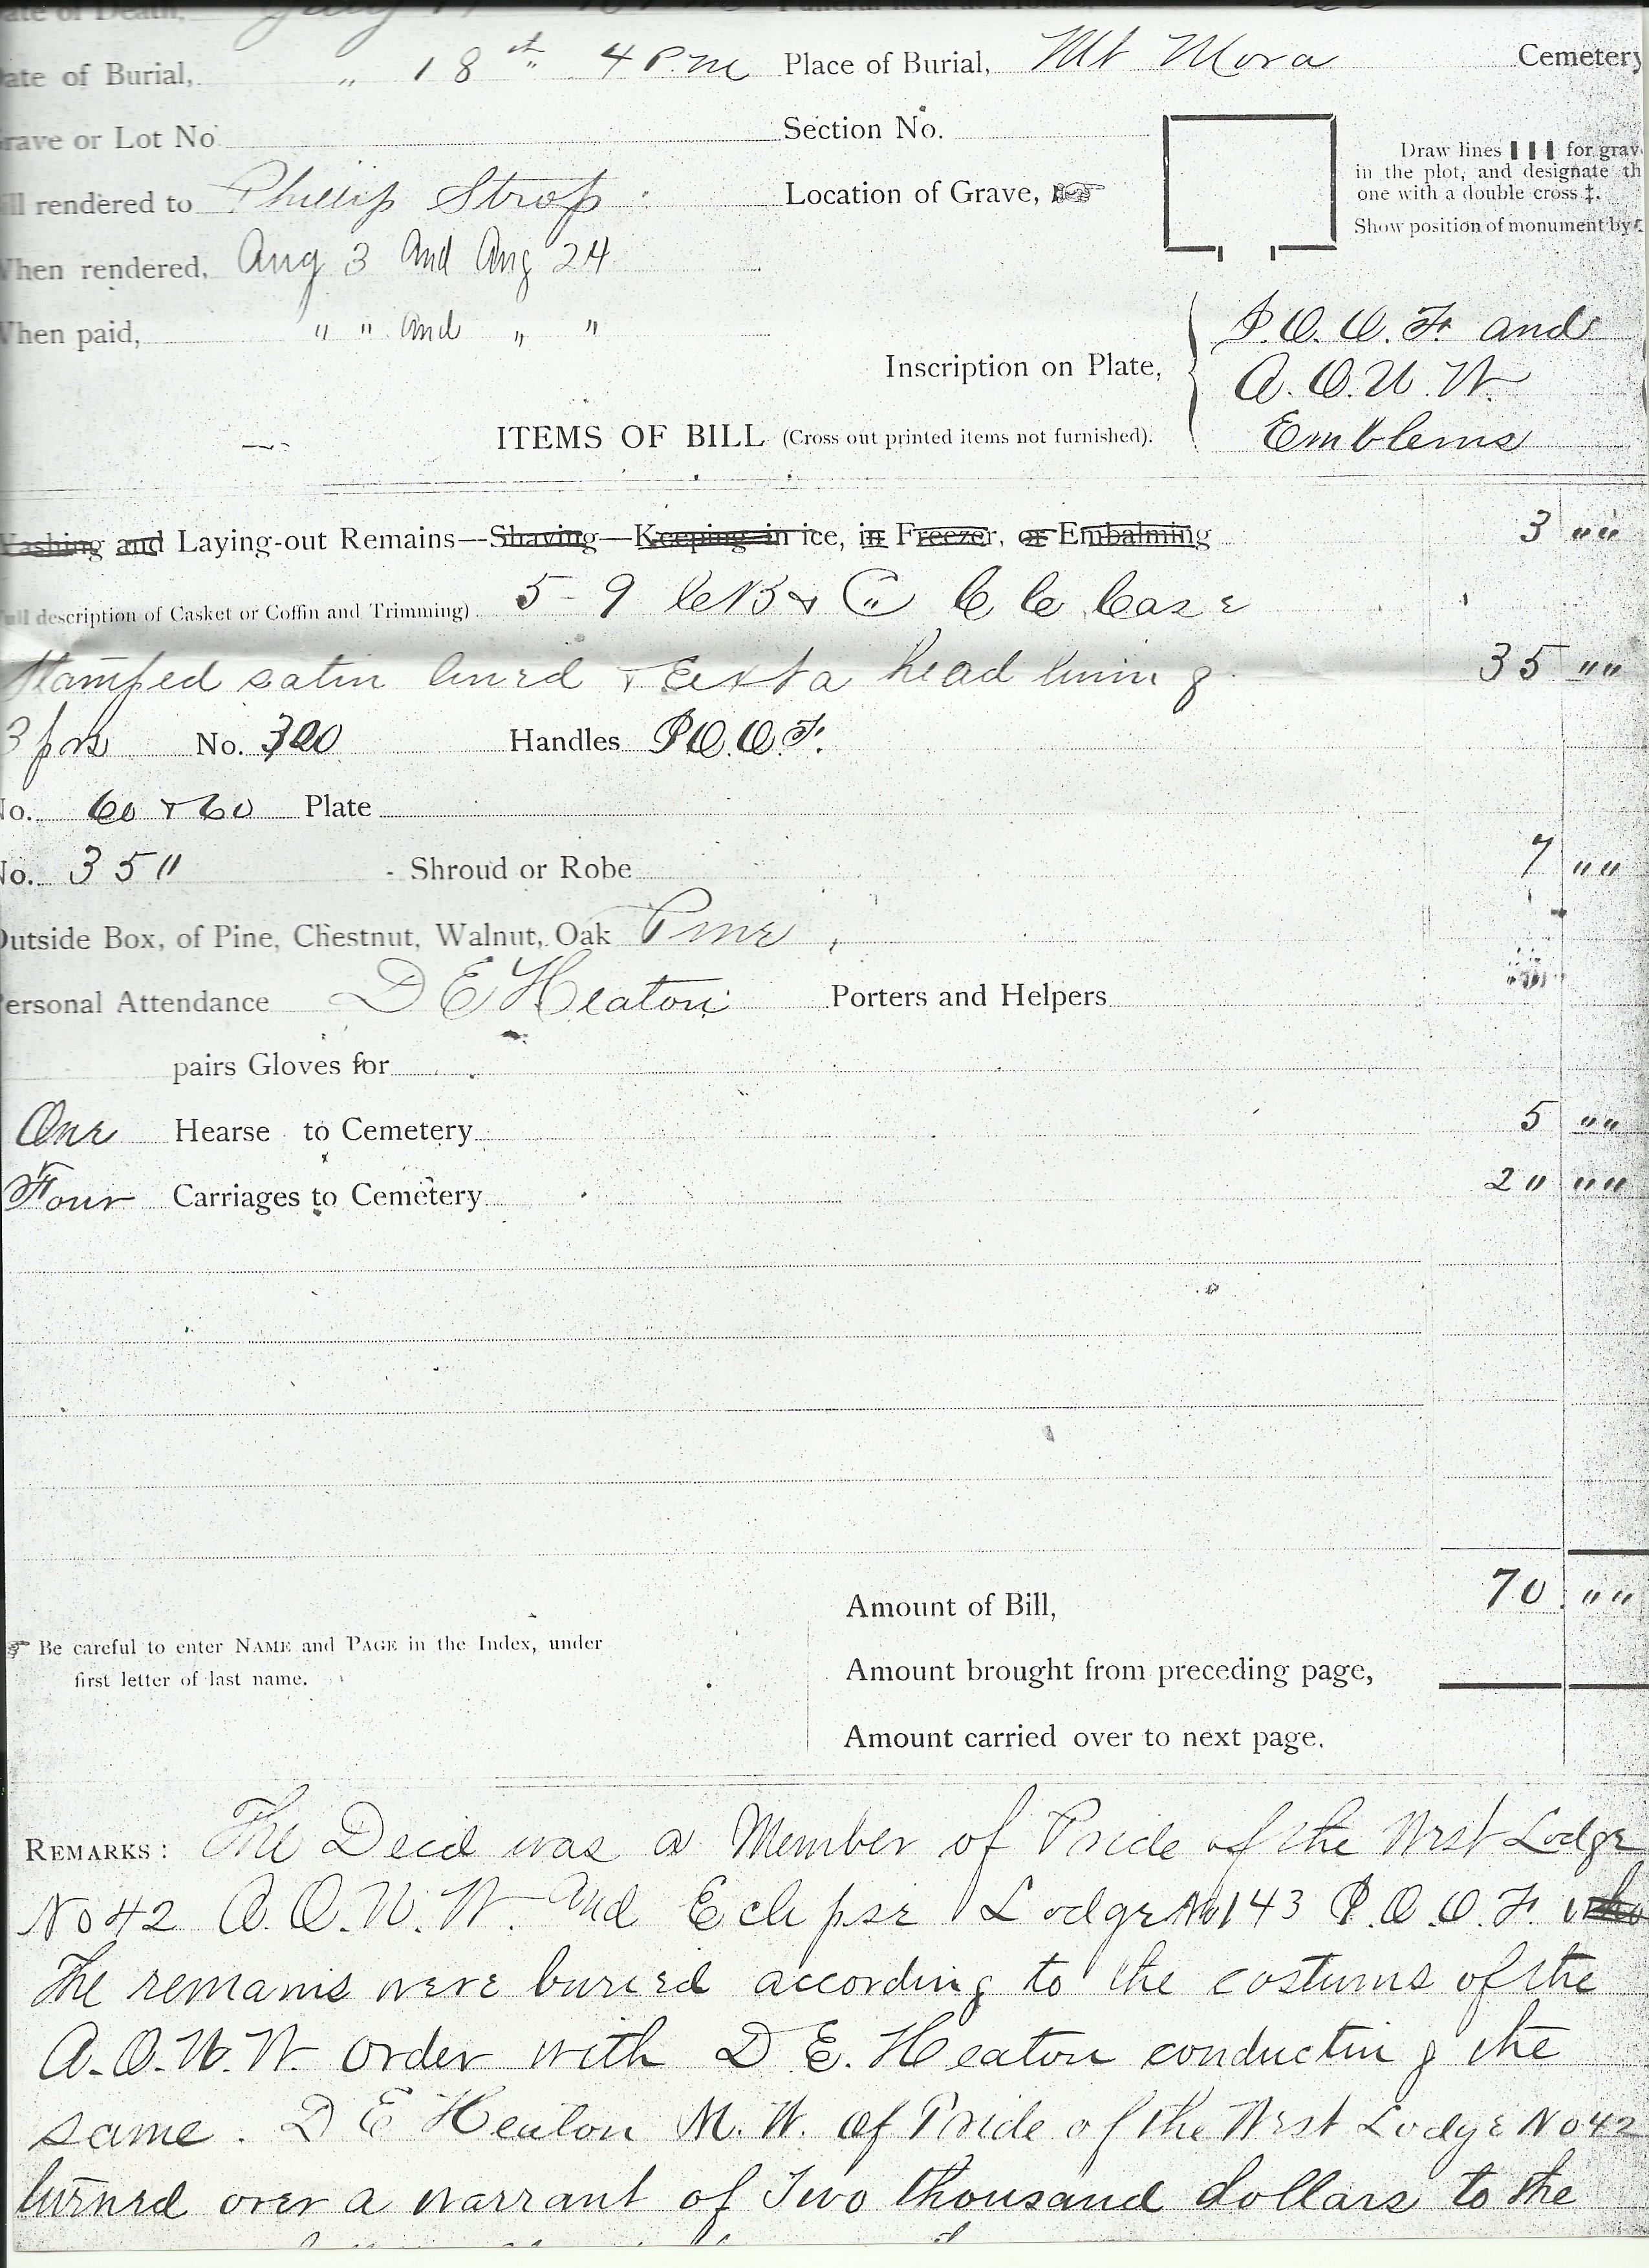 ate of Death, July
ate of Burial, " 18th 4 P.m Place of Burial, Mt Mora Cemetery
rave or Lot No Section No.
Draw lines ▮ ▮ ▮ for grav
in the plot, and designate th
one with a double cross ‡.
Show position of monument by
ill rendered to Phillip Strop Location of Grave, ☞
When rendered, Aug 3 and Aug 24
When paid, " " and " "
Inscription on Plate, I.O.O.F. and
A.O.U.W.
Emblems
ITEMS OF BILL (Cross out printed items not furnished).
Washing and Laying-out Remains—Shaving—Keeping in ice, in Freezer, or Embalming 3 ""
Full description of Casket or Coffin and Trimming) 5-9 Case
Stamped satin lined & Exta head lining 35 ""
3 prs No. 320 Handles I.O.O.F.
No. 60 & 60 Plate
No. 35" - Shroud or Robe 7 ""
Outside Box, of Pine, Chestnut, Walnut, Oak Pine
Personal Attendance D E Heaton Porters and Helpers
pairs Gloves for
One Hearse to Cemetery 5 ""
Four Carriages to Cemetery 2" ""
Amount of Bill, 70 ""
☞ Be careful to enter NAME and PAGE in the Index, under
first letter of last name.
Amount brought from preceding page,
Amount carried over to next page.
REMARKS: The Decd was a Member of Pride of the West Lodge
No 42 A.O.U.W. and Eclipse Lodge No 143 I.O.O.F. who
The remains were buried according to the costums of the
A.O.U.W. order with D E. Heaton conducting the
same. D E Heaton M.W. of Pride of the West Lodge No 42
turned over a warrant of Two thousand dollars to the